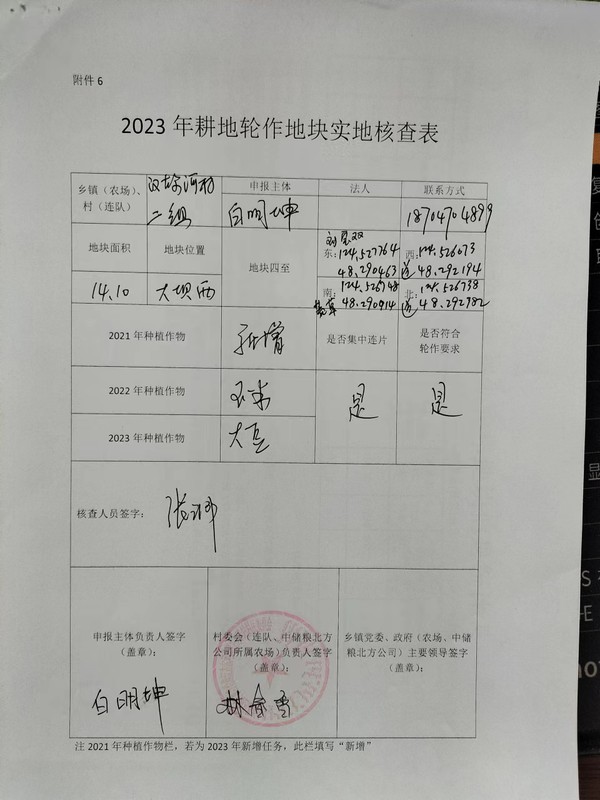 附件 6
2023 年耕地轮作地块实地核查表
乡镇（农场）、村（连队）
二组
申报主体
法人
联系方式
白明坤
18704704899
地块面积
地块位置
地块四至
东：124.527764
48.290463
西：124.526073
道 48.292194
14.10
大坝西
南：124.526748
48.290914
北：124.526738
道 48.292782
2021 年种植作物
新增
是否集中连片
是否符合
轮作要求
2022 年种植作物
玉米
是
是
2023 年种植作物
大豆
核查人员签字：
申报主体负责人签字
（盖章）：
村委会（连队、中储粮北方
公司所属农场）负责人签字
（盖章）：
乡镇党委、政府（农场、中储
粮北方公司）主要领导签字
（盖章）：
白明坤
注 2021 年种植作物栏，若为 2023 年新增任务，此栏填写“新增”